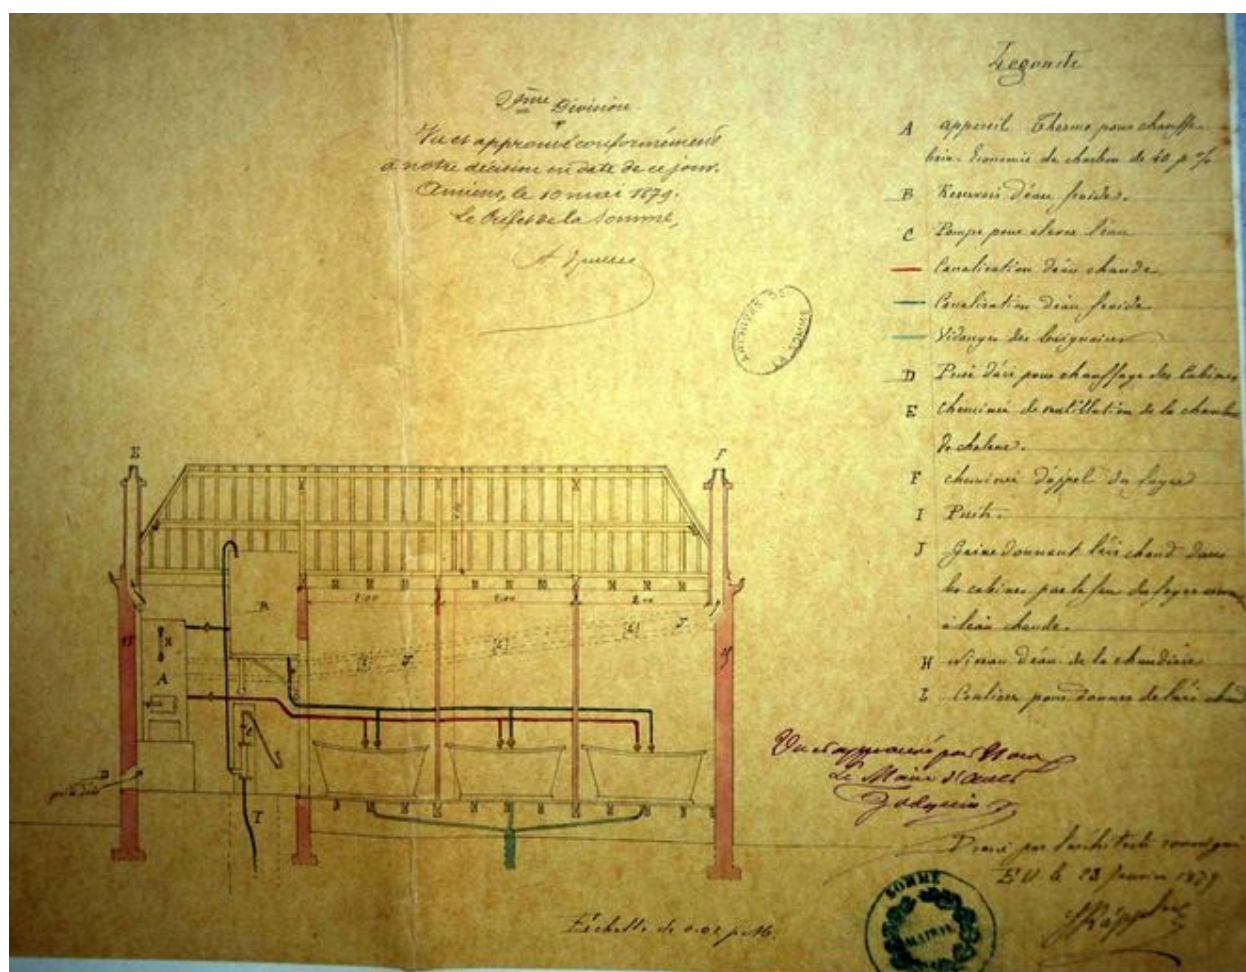 2ème Division
Vu et approuvé conformément
à notre décision en date de ce jour.
Amiens, le 10 mai 1879.
Le Préfet de la Somme,
ARCHIVES DE
Legende
A appareil Thermo pour chauffe
bain. Economie de charbon de 40 p %
B Reservoir d'eau froide.
C Pompe pour elever l'eau
Canalisation d'eau chaude
Canalisation d'eau froide
Vidanges des baignoires
D Prise d'air pour chauffage des Cabines
E Cheminée de ventillation de la chambre
de chaleur.
F cheminée d'appel du foyer
I Puits.
J Gaine donnant l'air chaud dans
les cabines par le feu du foyer
à l'eau chaude.
H Niveau d'eau de la chaudière
L Coulisses pour donner de l'air chaud
E
F
2.00
2.00
2.00
B
H
A
J
J
C
D
T
Vu et approuvé par Nous
Le Maire d'Ault
Dressé par l'architecte soussigné
EU le 23 Janvier 1879
SOMME
MAIRIE
Echelle de 0.02 p. M.